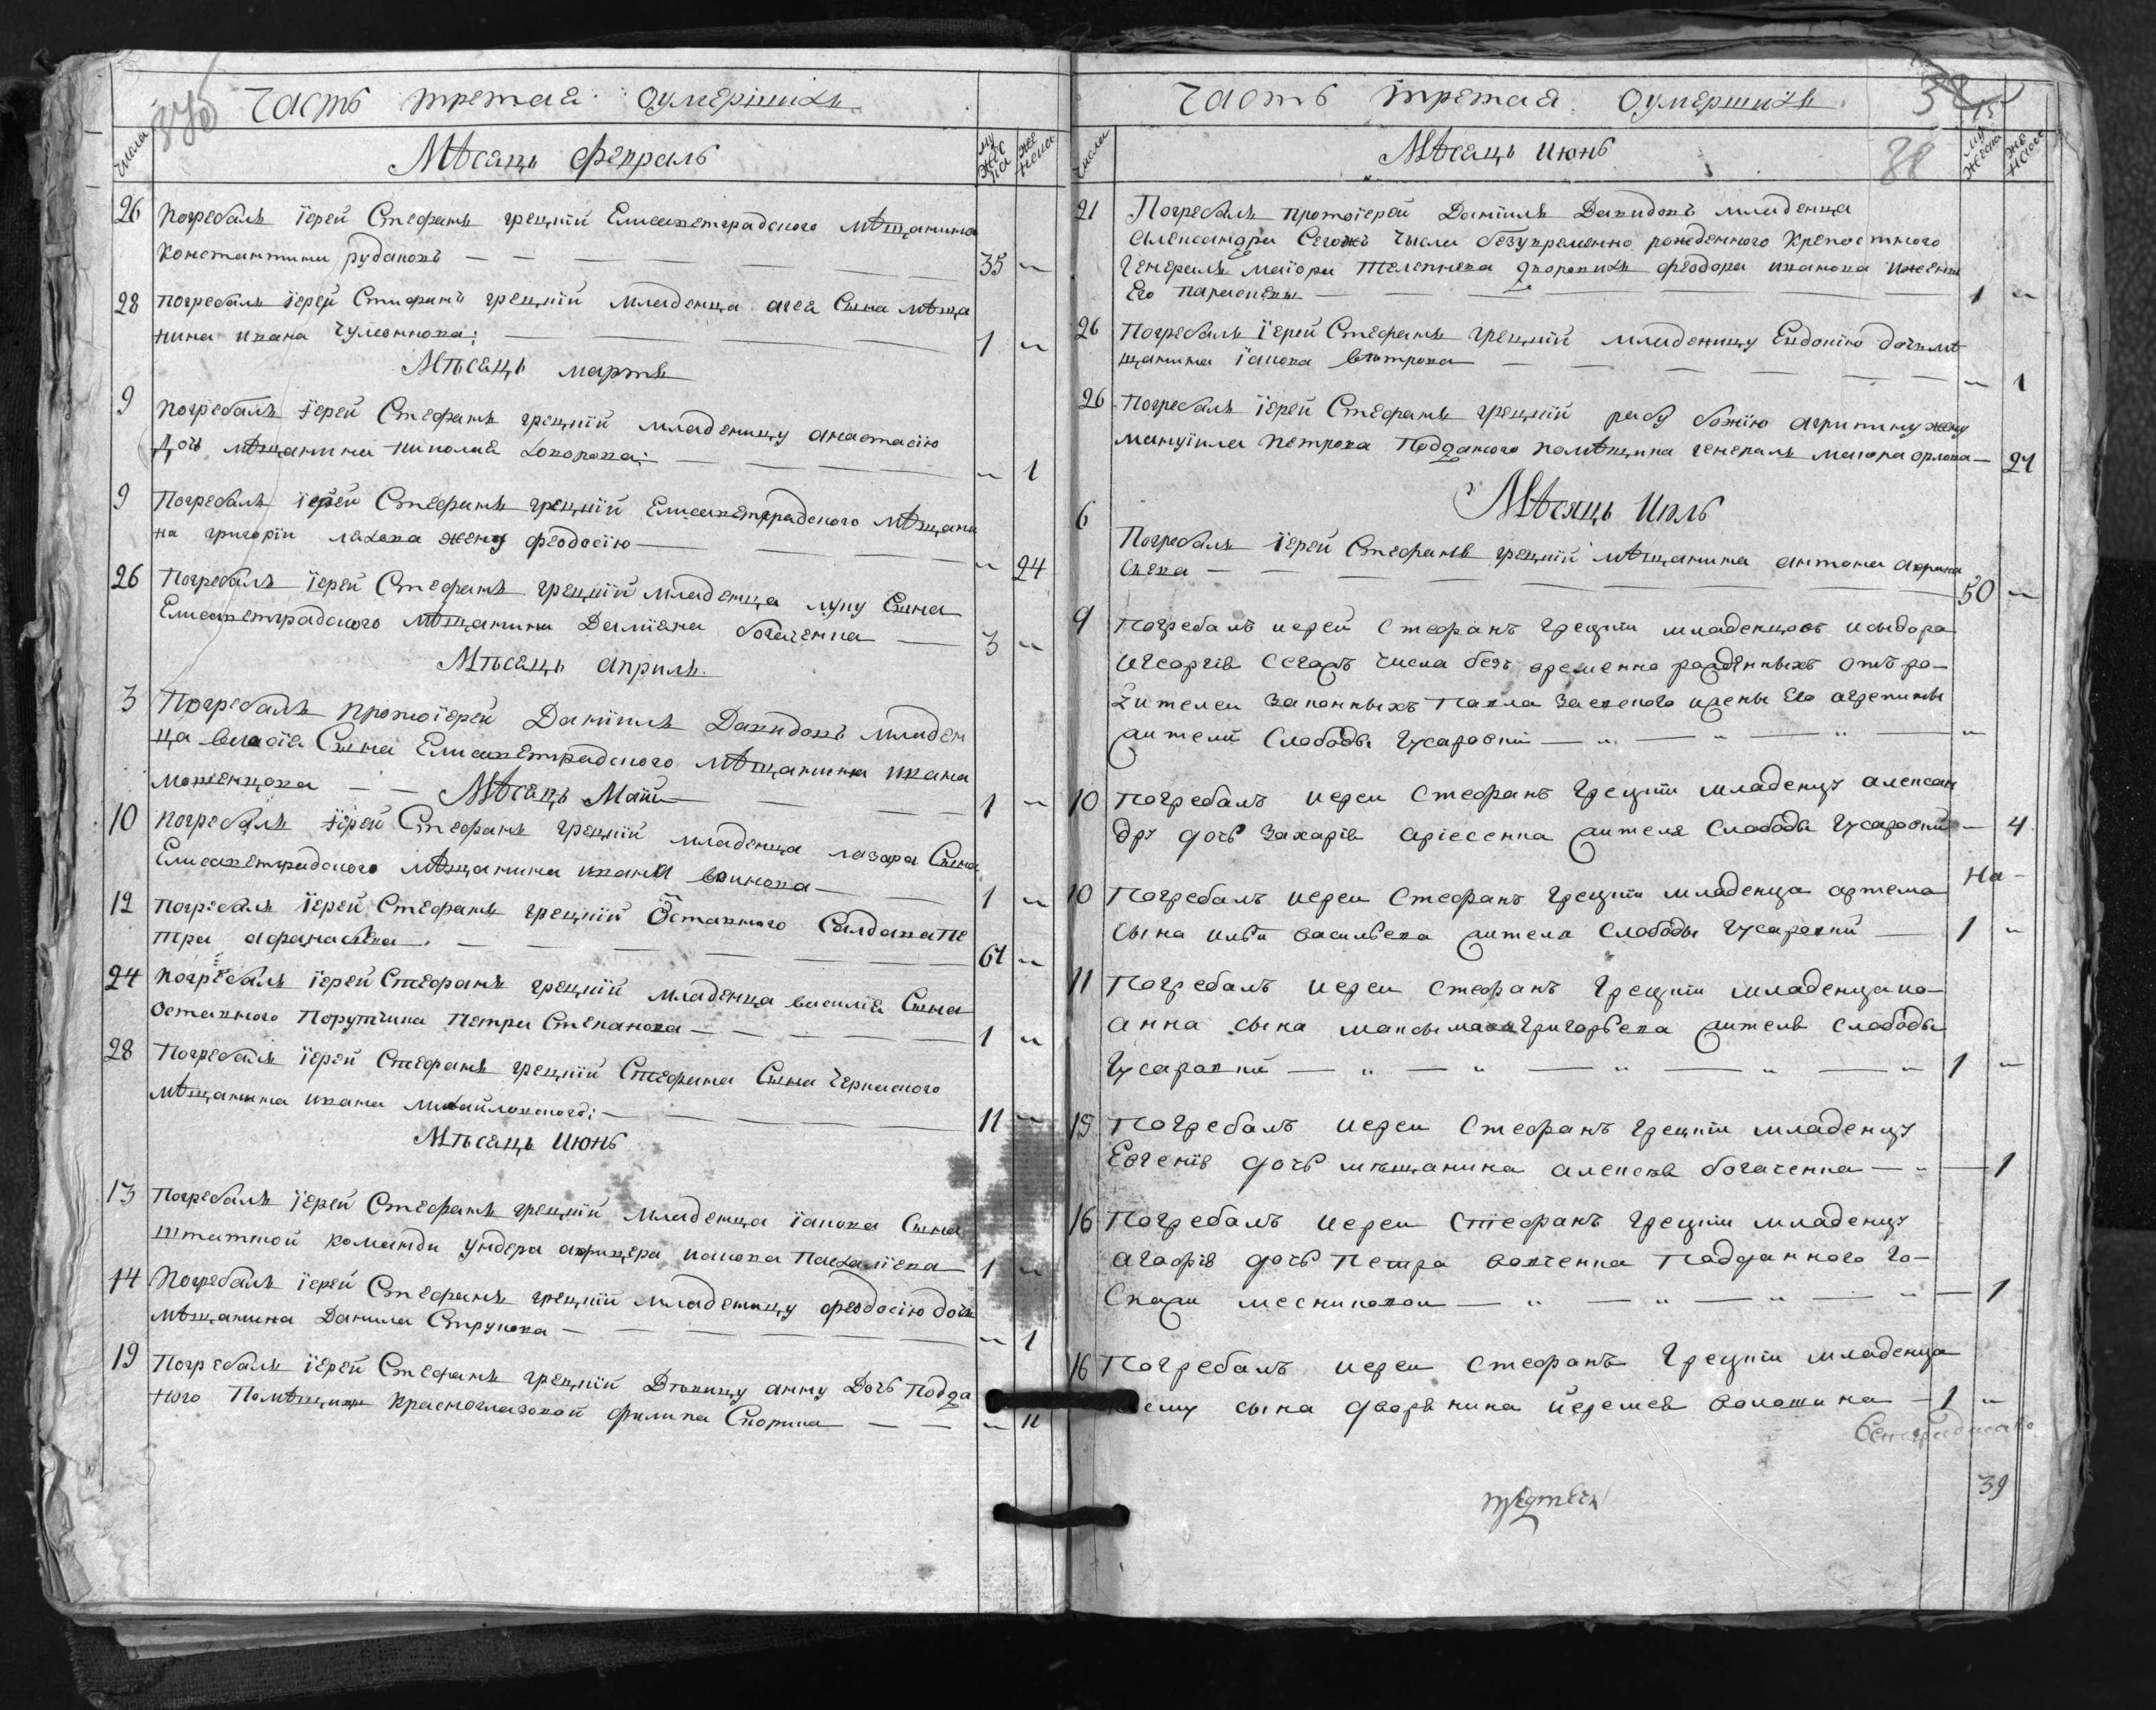 Часть третая оумершихъ
числа
Мѣсяцъ февраль
мужеска
женска
26 погребалъ іерей Стефанъ грецкій Елисаветградского мѣщанина
Константина рудаковъ 35 „
28 погребалъ іерей Стефанъ грецкій младенца Сына мѣща
нина ивана 1 „
Мѣсяцъ мартъ
9 погребалъ іерей Стефанъ грецкій младеницу анастасію
Дочь мѣщанина николая „ 1
9 Погребалъ іерей Стефанъ грецкій Елисаветградского мѣщани
на григорія ляхова жену феодосію „ 24
26 Погребалъ іерей Стефанъ грецкій младенца лупу Сына
Елисаветградского мѣщанина Даміяна богаченка 3 „
Мѣсяцъ априль
3 Погребалъ протоіерей Даніилъ Давидовъ младен
ца власія Сына Елисаветградского мѣщанина ивана
1 „
Мѣсяцъ Май
10 погребалъ іерей Стефанъ грецкій младенца лазара Сына
Елисаветградского мѣщанина ивана воинова 1 „
12 погребалъ іерей Стефанъ грецкій Оставного Салдата пе
тра афанасѣва 61 „
24 погребалъ іерей Стефанъ грецкій младенца василія Сына
Оставного Порутчика Петра Степанова 1 „
28 Погребалъ іерей Стефанъ грецкій Стефана Сына Черкаского
мѣщанина ивана михайловского: 11 „
Мѣсяцъ июнь
13 Погребалъ іерей Стефанъ грецкій младенца іакова Сына
штатной команди ундера афицера иакова 1 „
14 Погребалъ іерей Стефанъ грецкій младеницу феодосію дочь
мѣщанина Данила Струкова „ 1
19 Погребалъ іерей Стефанъ грецкій Дѣвицу анну Дочь подда
ного Помѣщики Красноглазовой филипа Скорика „ 11
Часть третая оумершихъ
числа
Мѣсяцъ июнь
88
мужеска
женска
21 Погребалъ протоіерей Даніилъ Давидовъ младенца
александра Сегожъ числа безукременно рожденного крепостного
генерала маіора дворовихъ феодора иванова ижени
Его параскевы 1 „
26 Погребалъ іерей Стефанъ грецкій младеницу Евдокію дочь мѣ
щанина іакова вѣтрова „ 1
26 Погребалъ іерей Стефанъ грецкій рабу божію агрипину жену
мануіила петрова Подданого помѣщика генерала маиора орлова 21
Мѣсяцъ Июль
6 Погребалъ іерей Стефанъ грецкій мѣщанина антона
50 „
9 погребалъ иерей Стефанъ Грецкии младенцовъ исидора
игеоргія Сегожъ числа безъ временна рожденныхъ отъ ро-
дителеи законныхъ Павла ижены Его агрепины
жителй Слободы Гусаровки „
10 погребалъ иереи Стефанъ Грецкии младенцу алексан
дру дочь захарія жителя Слободы Гусаровки 4
10 погребалъ иереи Стефанъ Грецкии младенца артема
Сына ильи васильева жителя Слободы Гусаровки 1 „
11 Погребалъ иереи Стефанъ Грецкии младенца ио-
анна Сына максыма Григорьева жителя слободы
Гусаровки 1 „
15 Погребалъ иереи Стефанъ Грецкии младенцу
Евгенію дочь мѣщанина алексѣя богаченка 1
16 Погребалъ иереи Стефанъ Грецкии младенцу
агафію дочь Петра вовченка Подданного го-
Спожи 1
16 Погребалъ иереи Стефанъ Грецкии младенца
сына дворянина иеремея волошина 1 „
39